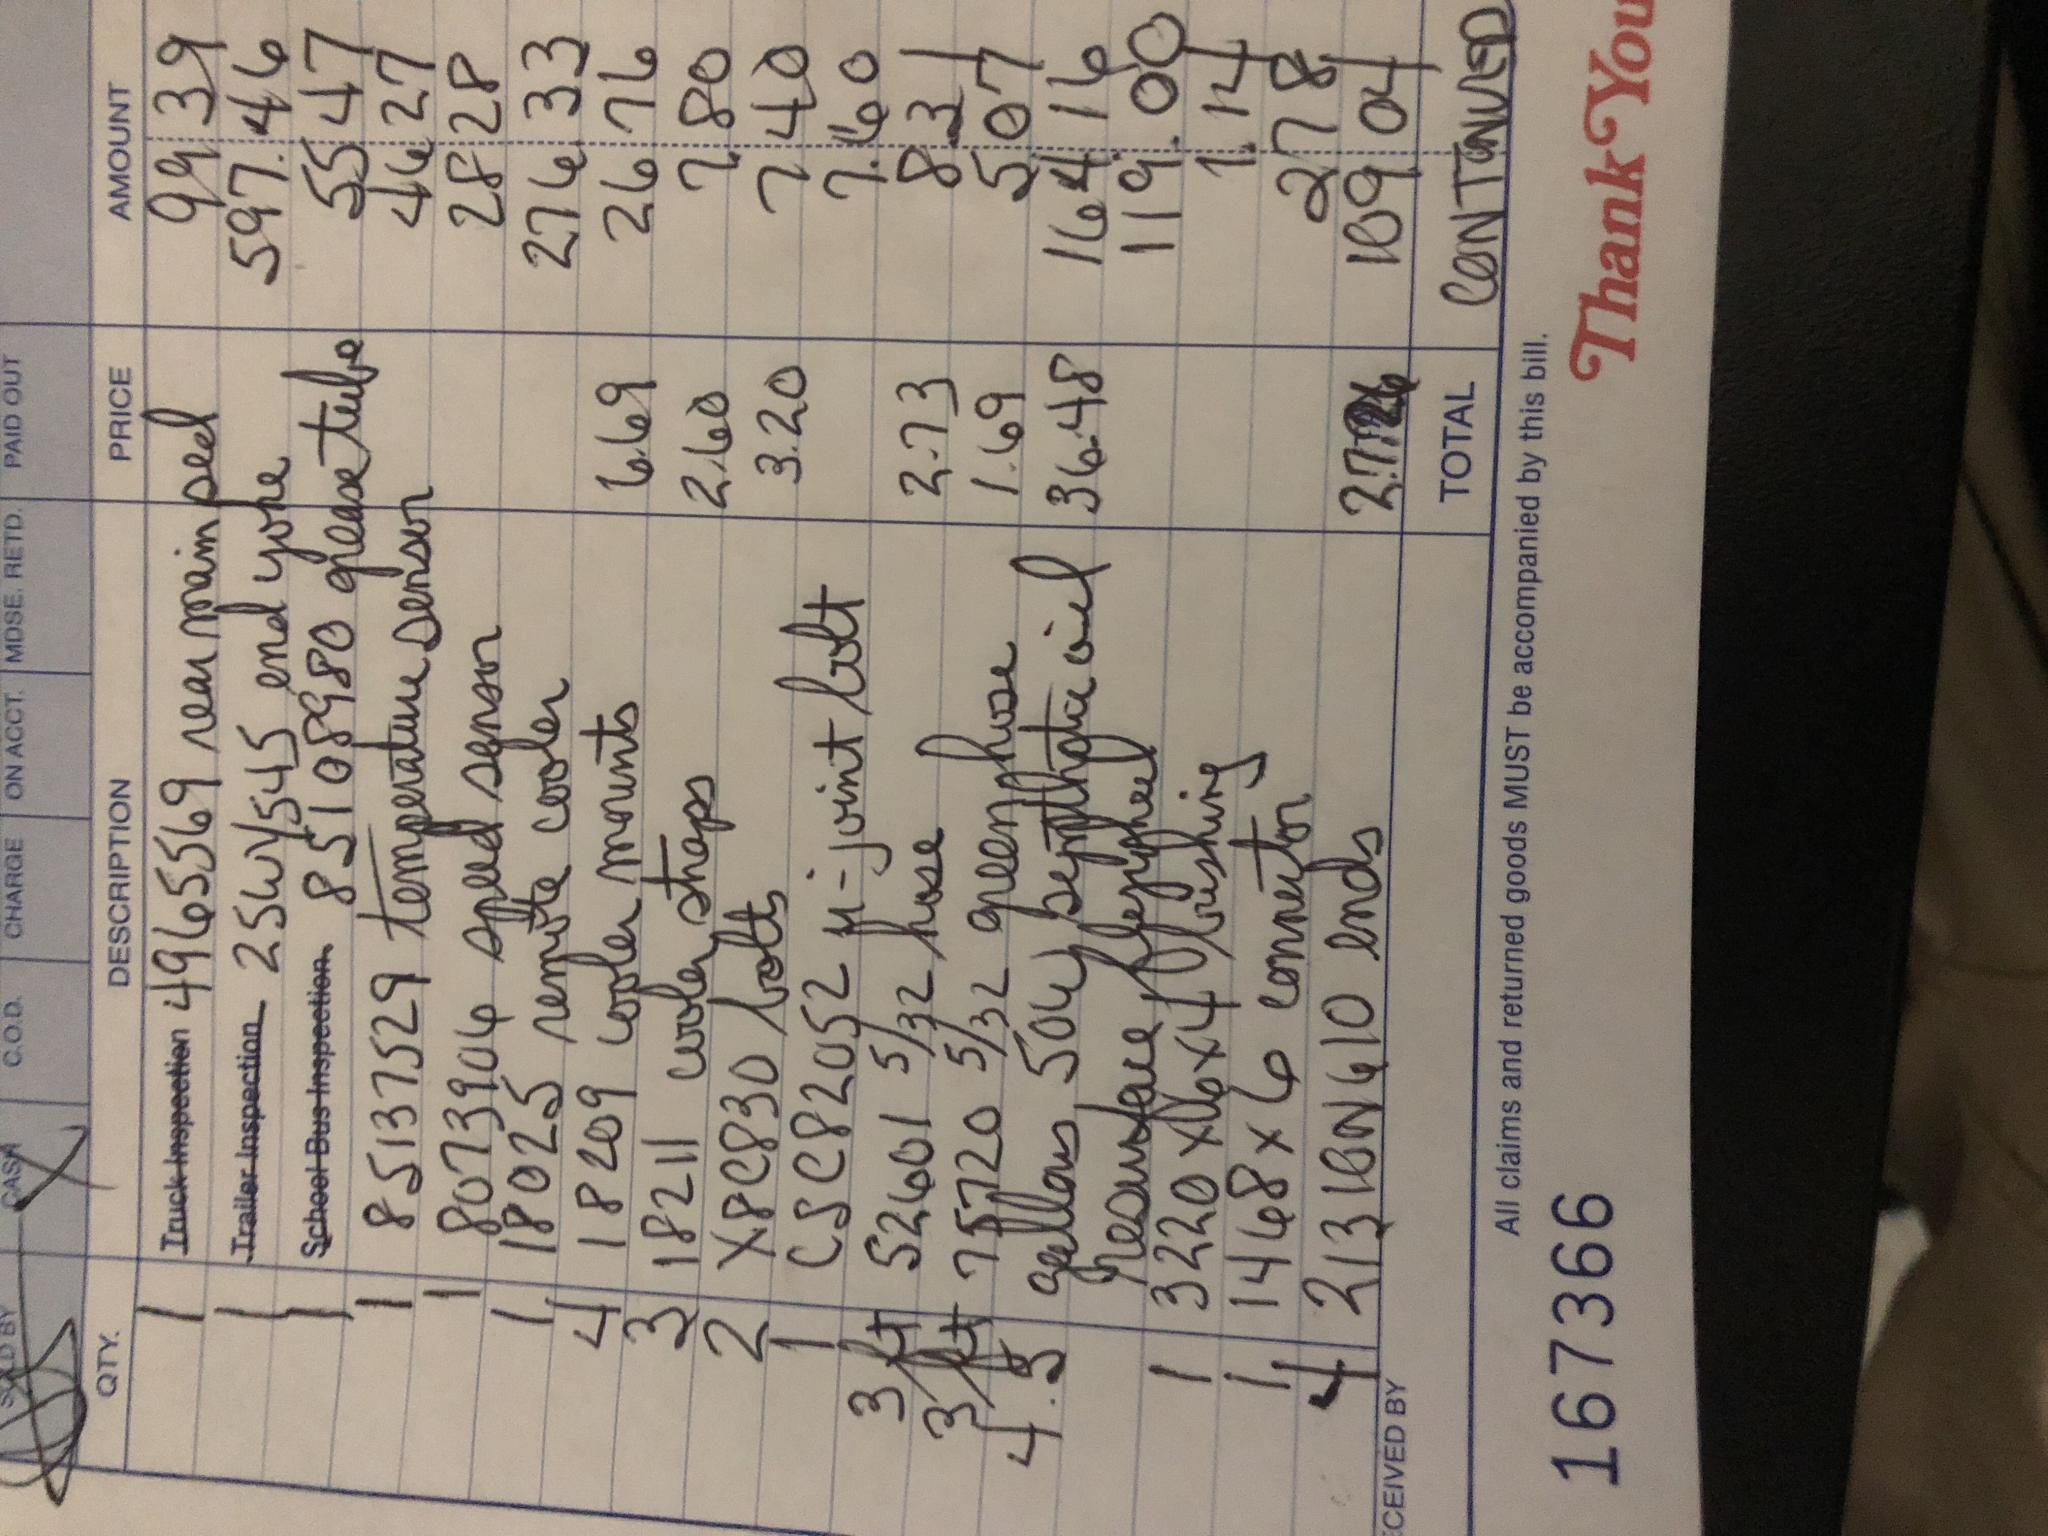 SOLD BY CASH C.O.D. CHARGE ON ACCT. MDSE. RETD. PAID OUT
QTY. DESCRIPTION PRICE AMOUNT
1 Truck Inspection 4965569 rear main seal 99 39
1 Trailer Inspection 25WYS45 end yoke 597.46
1 School Bus Inspection 85108980 grease tube 55 47
1 85137529 temperature sensor 46 27
1 8073906 speed sensor 28 28
1 18025 remote cooler 276 33
4 18209 cooler mounts 6.69 26 76
3 18211 cooler straps 2.60 7 80
2 X8C830 bolts 3.20 7 40
1 CSC82052 u-joint bolt 7.60
3 ft 52601 5/32 hose 2.73 8.31
3 ft 75720 5/32 green hose 1.69 5 07
4.5 gallons 50W synthetic oil 36.48 164 16
resurface flywheel 119.00
1 3220x6x4 bushing 1.14
1 1468x6 connector 2 78
4 213 10N610 ends 109 04
RECEIVED BY TOTAL CONTINUED
All claims and returned goods MUST be accompanied by this bill.
167366 Thank You